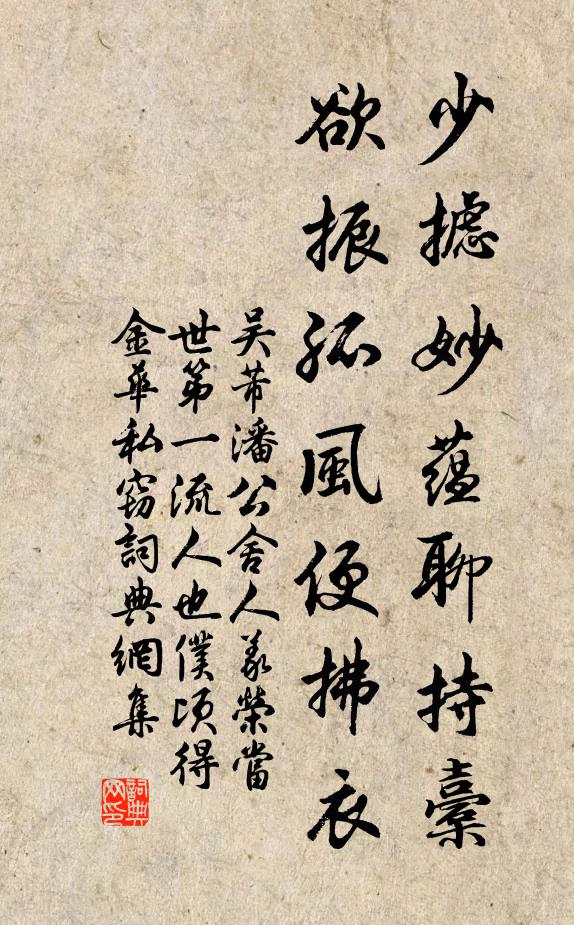 少攄妙蘊聊持橐
欲振孤風便拂衣
吳芾潘公舍人義榮當
世第一流人也僕頃得
金華私竊詞典網集
詞典网印